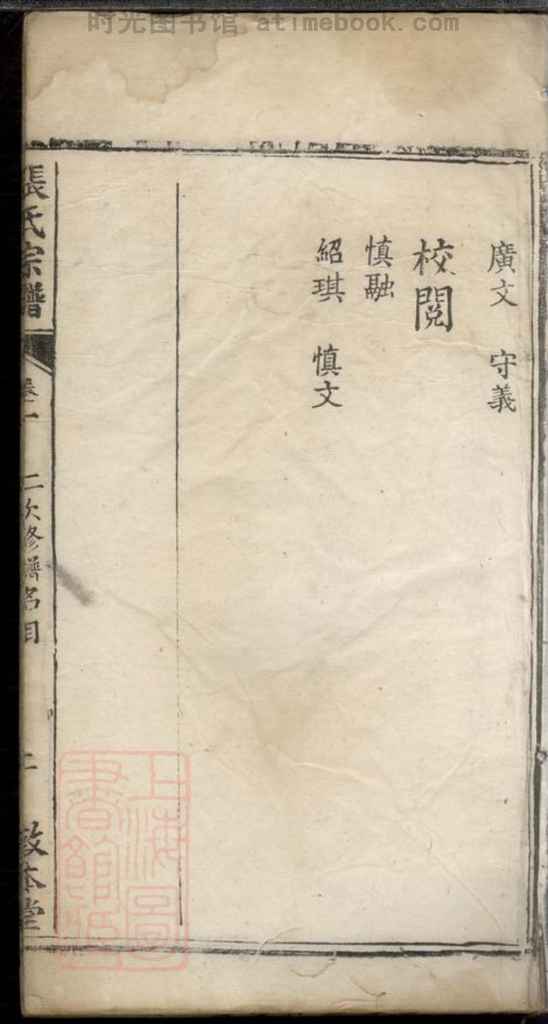 时光图书馆 atimebook.com
廣文 守義
校閲
慎融
紹琪 慎文
張氏宗譜
卷一 二次修譜名目 二 敦本堂
上海圖書館藏